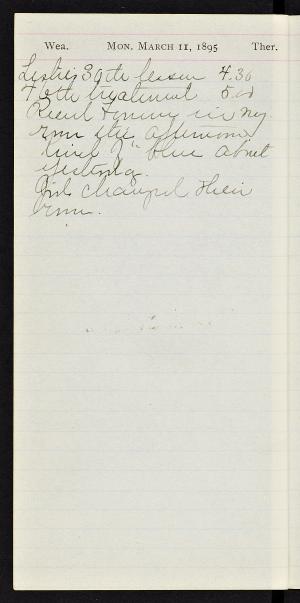 Wea. Mon. March 11, 1895 Ther.
Leslie's 30th lesson 4.30
48th treatment 5.00
Read Fanny in my
room the afternoon
kind of "blue" about
yesterday.
Girls changed their
room.